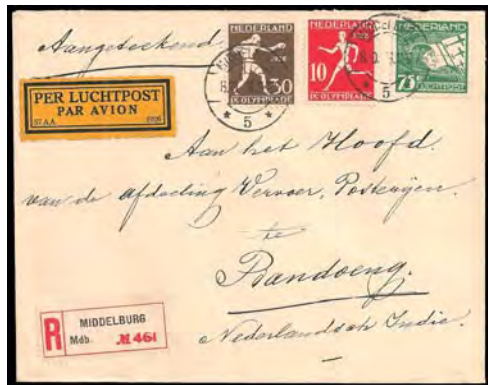 Aangeteekend.
NEDERLAND
30
IX OLYMPIADE
NEDERLAND
1928
10
IX OLYMPIADE
NEDERLAND
75
5
5
PER LUCHTPOST
PAR AVION
57 AA 1928
Aan het Hoofd.
van de afdeeling Vervoer, Posterijen.
te
Bandoeng.
Nederlandsch Indie.
R
MIDDELBURG
Mdb. № 461